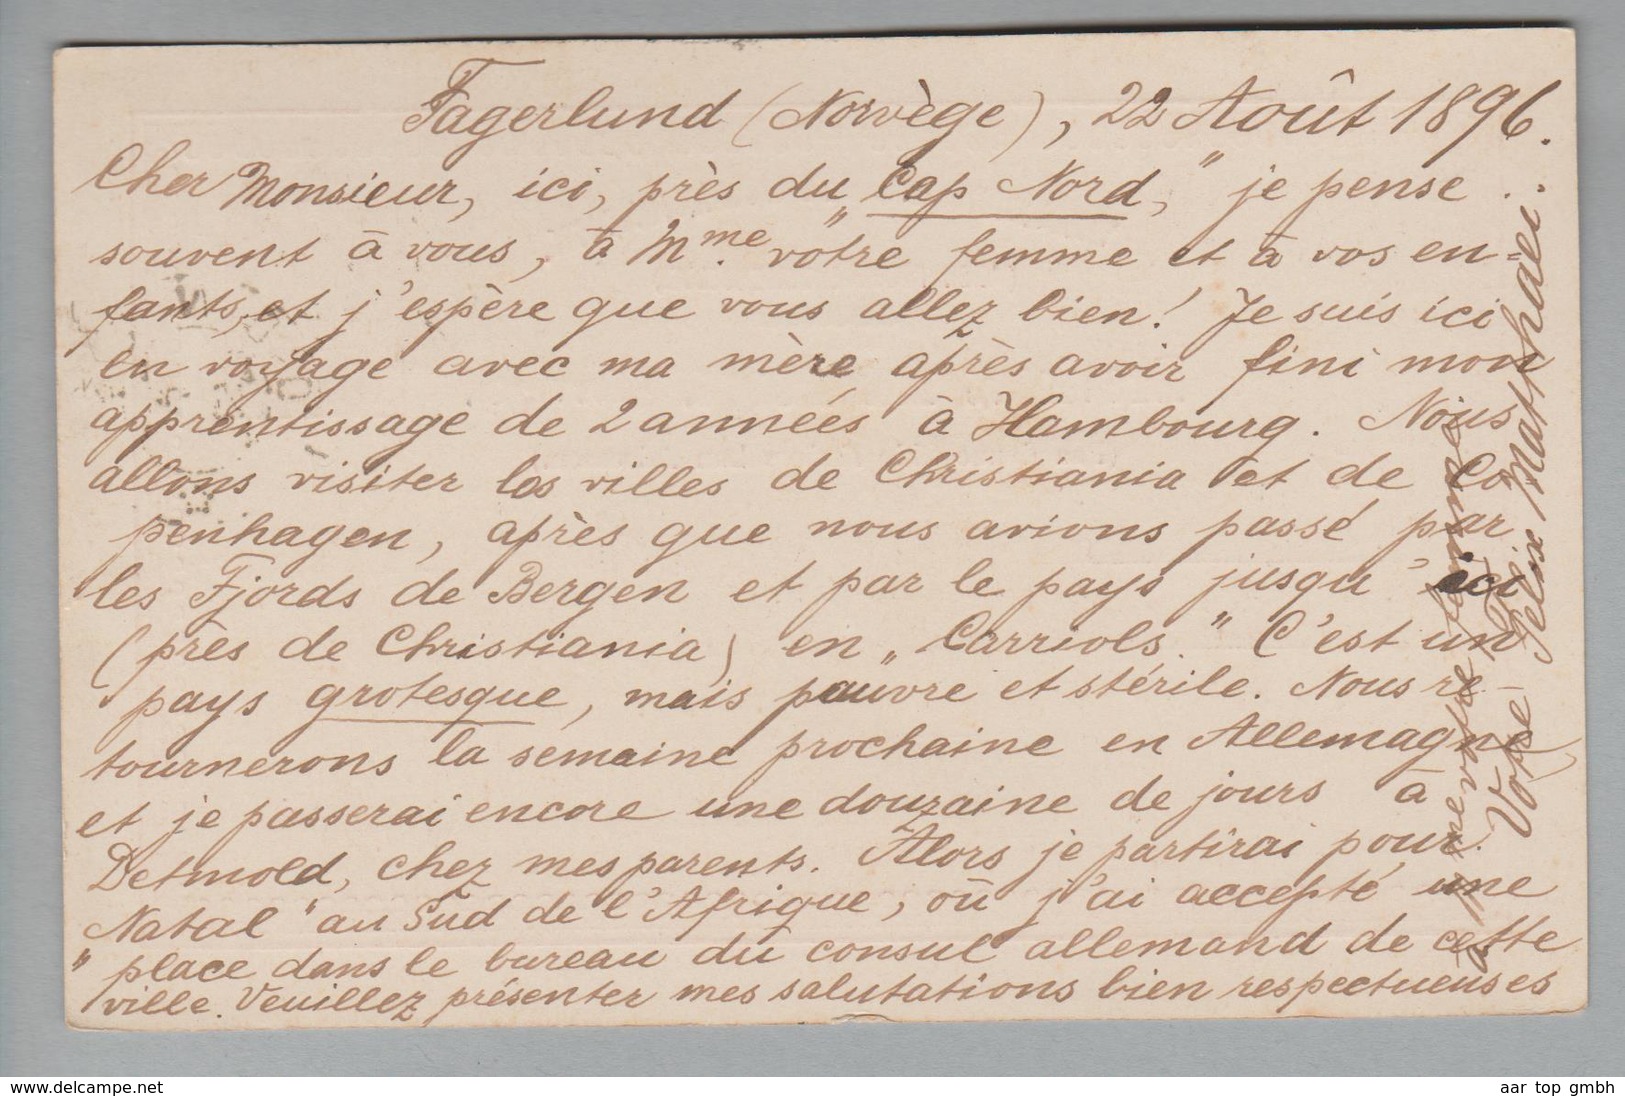 Fagerlund (Norvège), 22 Août 1896.
Cher Monsieur, ici, près du „Cap Nord," je pense
souvent à vous, à Mme. votre femme et à vos en=
fants, et j'espère que vous allez bien! Je suis ici
en voyage avec ma mère après avoir fini mon
apprentissage de 2 années à Hambourg. Nous
allons visiter les villes de Christiania et de Co
penhagen, après que nous avions passé par
les Fjords de Bergen et par le pays jusqu'ici
(près de Christiania) en „Carriols." C'est un
pays grotesque, mais pauvre et stérile. Nous re-
tournerons la semaine prochaine en Allemagne
et je passerai encore une douzaine de jours à
Detmold, chez mes parents. Alors je partirai pour
„Natal" au Sud de l'Afrique, où j'ai accepté une
place dans le bureau du consul allemand de cette
ville. Veuillez présenter mes salutations bien respectueuses
à Mme votre femme
Votre Felix Matthaei.
www.delcampe.net
aar top gmbh